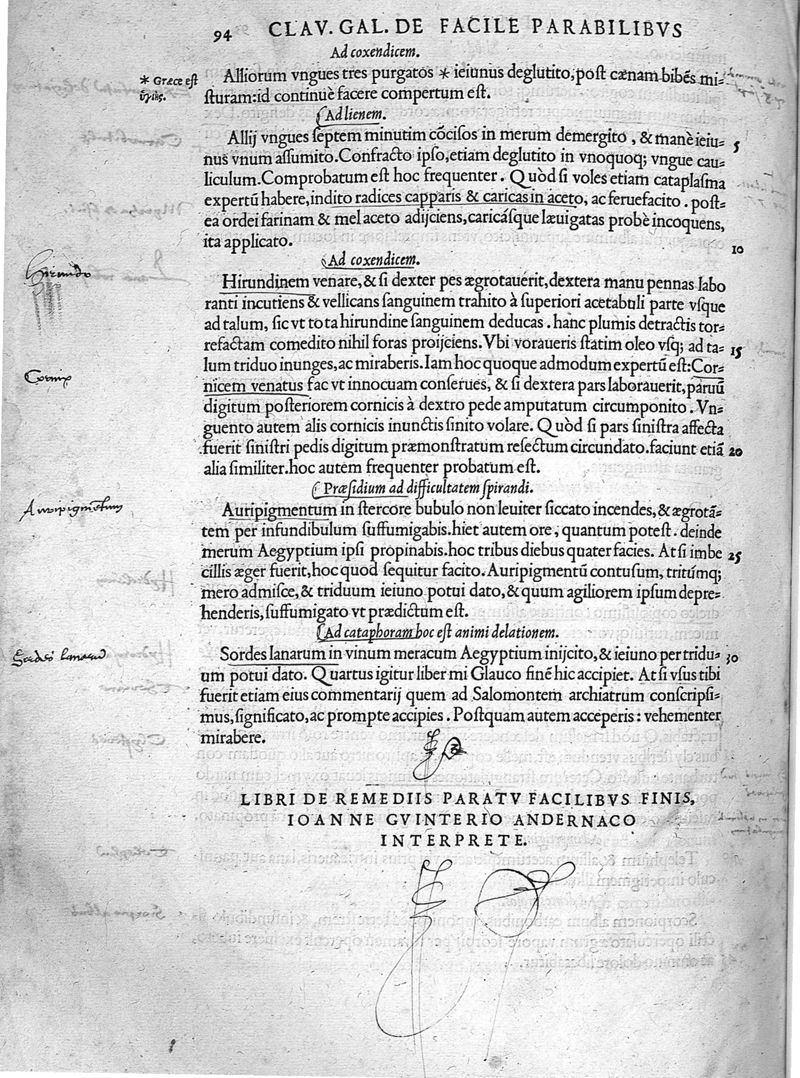 94 CLAV. GAL. DE FACILE PARABILIBVS
Ad coxendicem.
Alliorum vngues tres purgatos * ieiunus deglutito, post cænam bibẽs mi-
* Græce est
sturam: id continuè facere compertum est.
Ad lienem.
Allij vngues septem minutim cõcisos in merum demergito, & manè ieiu- 5
nus vnum assumito. Confracto ipso, etiam deglutito in vnoquoq; vngue cau-
liculum. Comprobatum est hoc frequenter. Quòd si voles etiam cataplasma
expertũ habere, indito radices capparis & caricas in aceto, ac feruefacito. post-
ea ordei farinam & mel aceto adijciens, caricásque læuigatas probè incoquens,
ita applicato. 10
Ad coxendicem.
Hirundo
Hirundinem venare, & si dexter pes ægrotauerit, dextera manu pennas labo
ranti incutiens & vellicans sanguinem trahito à superiori acetabuli parte vsque
ad talum, sic vt tota hirundine sanguinem deducas. hanc plumis detractis tor-
refactam comedito nihil foras proijciens. Vbi voraueris statim oleo vsq; ad ta- 15
lum triduo inunges, ac miraberis. Iam hoc quoque admodum expertũ est: Cor-
Cornix
nicem venatus fac vt innocuam conserues, & si dextera pars laborauerit, paruũ
digitum posteriorem cornicis à dextro pede amputatum circumponito. Vn-
guento autem alis cornicis inunctis sinito volare. Quòd si pars sinistra affecta
fuerit sinistri pedis digitum præmonstratum resectum circundato. faciunt etiã 20
alia similiter. hoc autem frequenter probatum est.
Præsidium ad difficultatem spirandi.
Auripigmentum
Auripigmentum in stercore bubulo non leuiter siccato incendes, & ægrotã-
tem per infundibulum suffumigabis. hiet autem ore, quantum potest. deinde
merum Aegyptium ipsi propinabis. hoc tribus diebus quater facies. At si imbe 25
cillis æger fuerit, hoc quod sequitur facito. Auripigmentũ contusum, tritúmq;
mero admisce, & triduum ieiuno potui dato, & quum agiliorem ipsum depre-
henderis, suffumigato vt prædictum est.
Ad cataphoram hoc est animi delationem.
Sordes lanarum
Sordes lanarum in vinum meracum Aegyptium inijcito, & ieiuno per tridu- 30
um potui dato. Quartus igitur liber mi Glauco finẽ hic accipiet. At si vsus tibi
fuerit etiam eius commentarij quem ad Salomontem archiatrum conscripsi-
mus, significato, ac prompte accipies. Postquam autem acceperis: vehementer
mirabere.
LIBRI DE REMEDIIS PARATV FACILIBVS FINIS,
IOANNE GVINTERIO ANDERNACO
INTERPRETE.